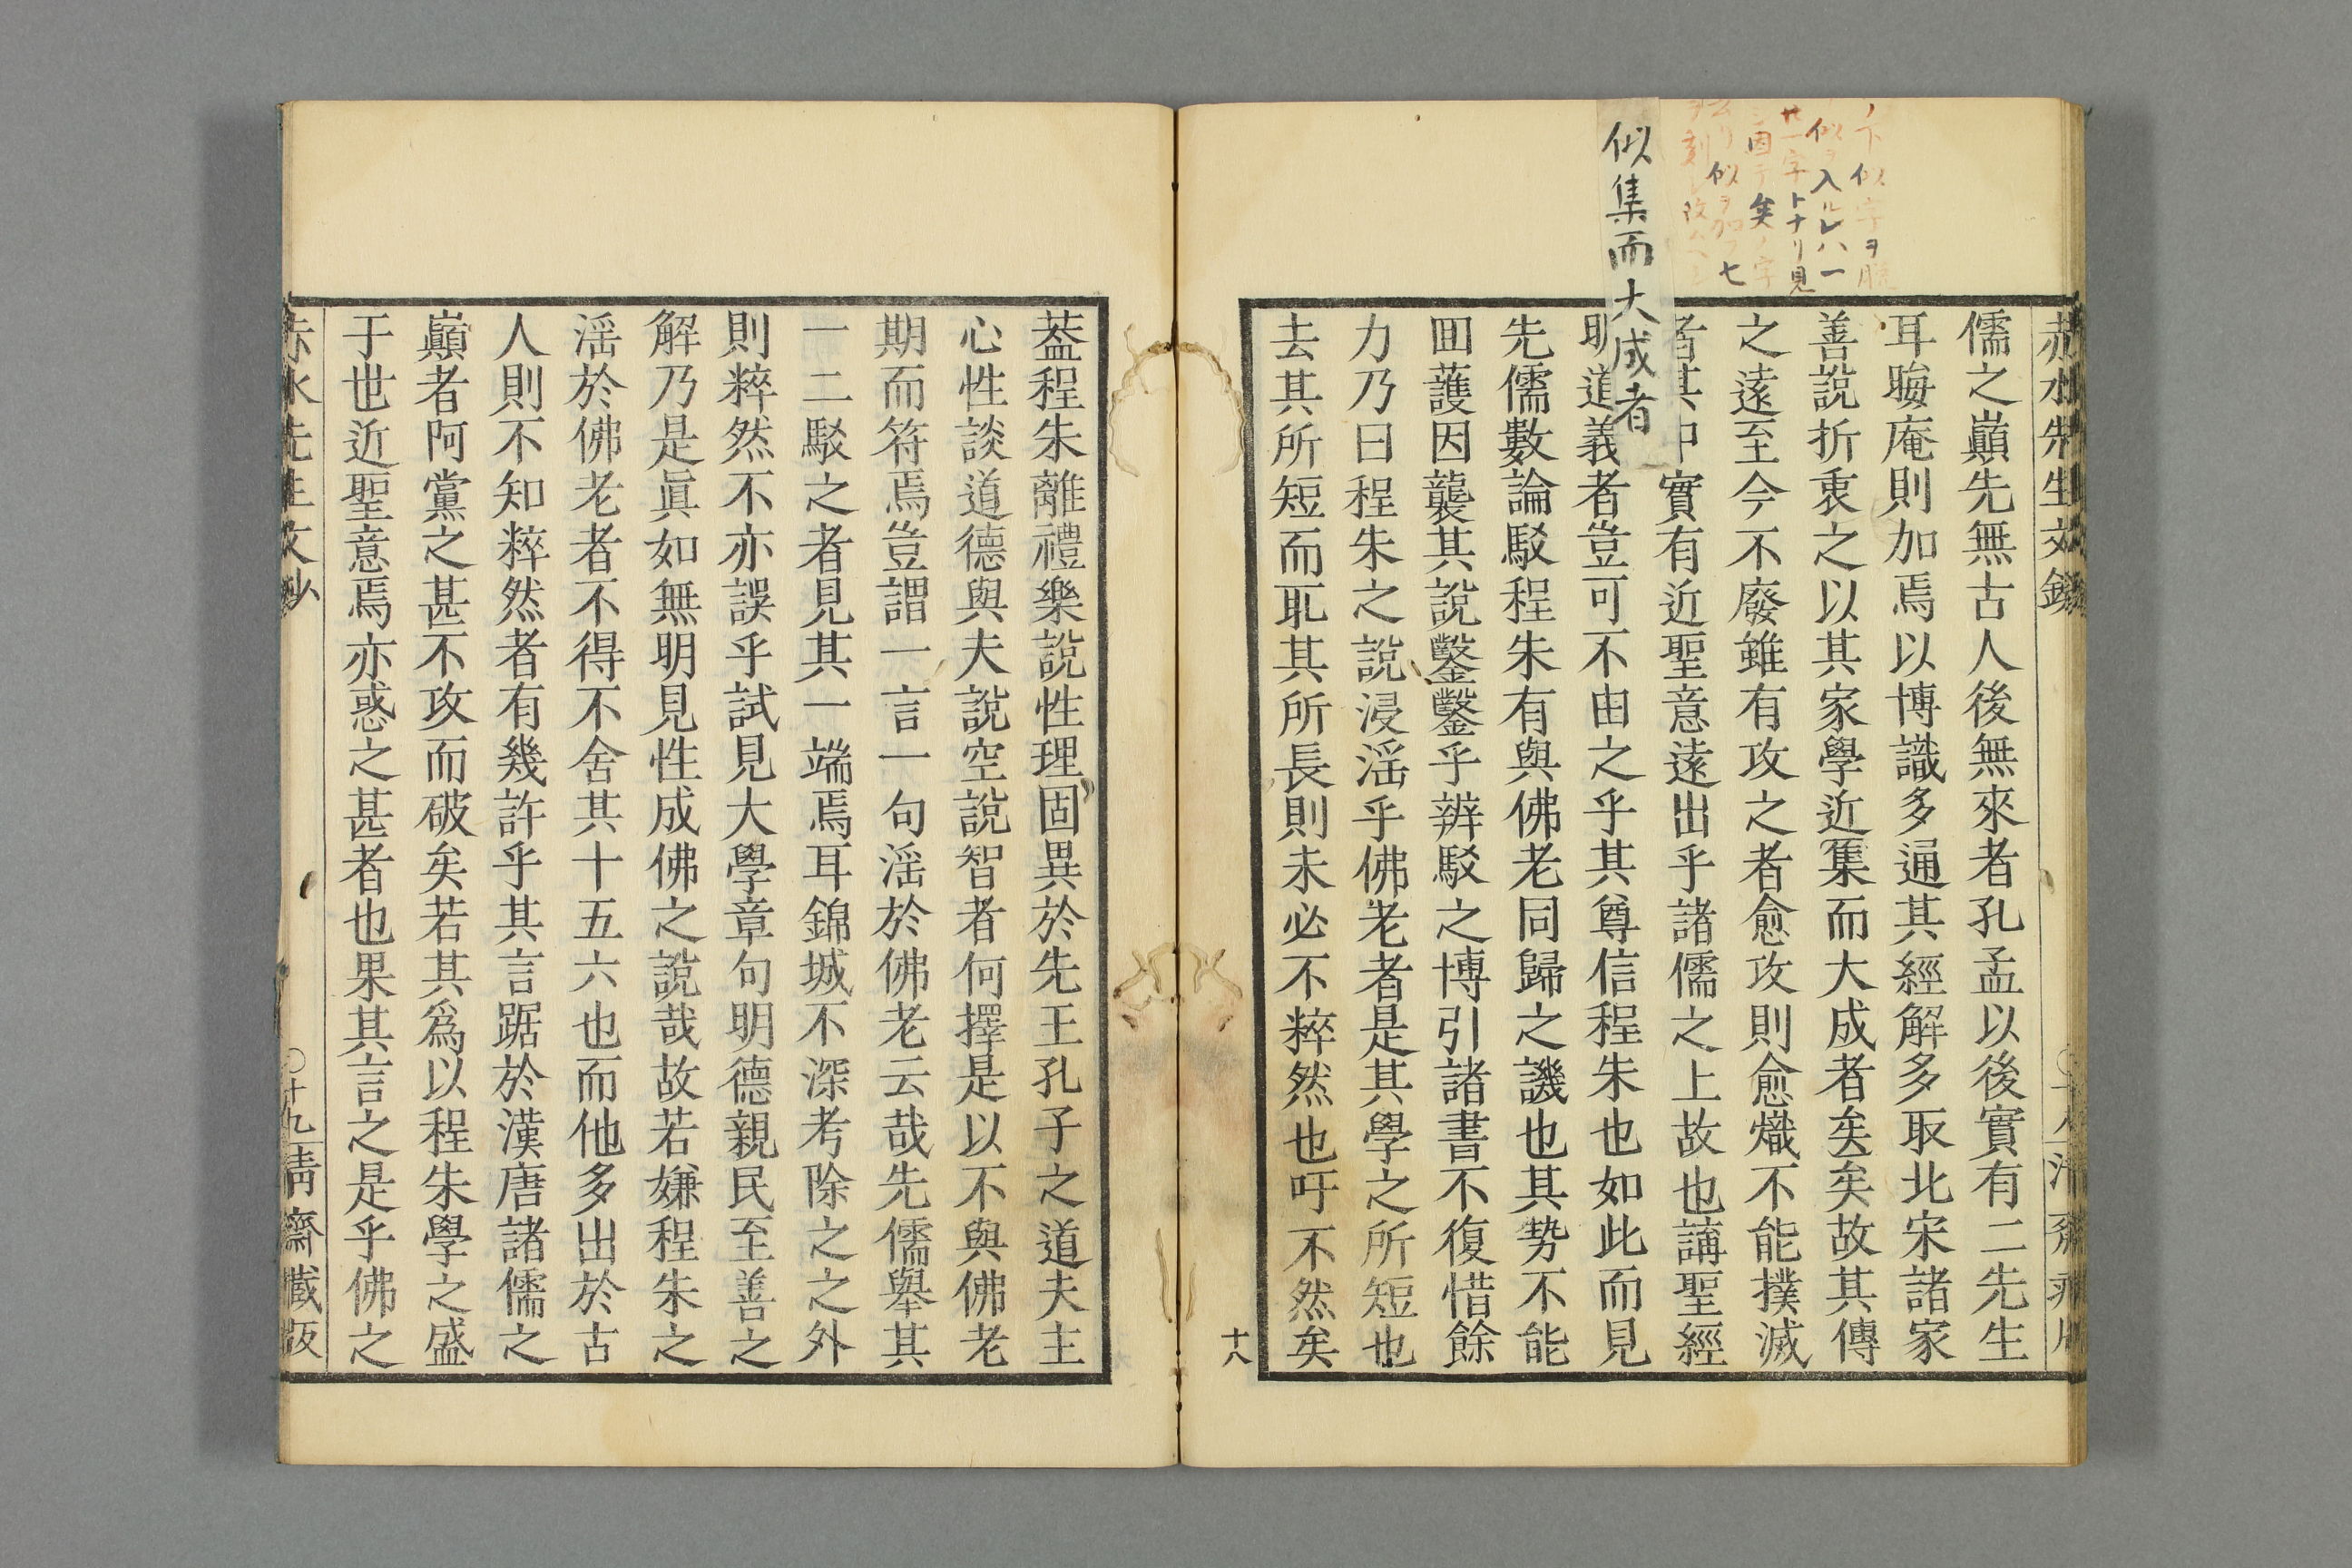 儒之巓先無古人後無來者孔孟以後實有二先生
耳晦庵則加焉以博識多通其經解多取北宋諸家
善說折衷之以其家學近集而大成者矣矣故其傳
之遠至今不廢雖有攻之者愈攻則愈熾不能撲滅
者其中實有近聖意遠出乎諸儒之上故也講聖經
明道義者豈可不由之乎其尊信程朱也如此而見
先儒數論駁程朱有與佛老同歸之譏也其势不能
回護因襲其說鑿鑿乎辨駁之博引諸書不復惜餘
力乃曰程朱之說浸淫乎佛老者是其學之所短也
去其所短而耴其所長則未必不粹然也吁不然矣
似集而大成者
十八
葢程朱離禮樂說性理固異於先王孔子之道夫主
心性談道德與夫說空說智者何擇是以不與佛老
期而符焉豈謂一言一句淫於佛老云哉先儒舉其
一二駁之者見其一端焉耳錦城不深考除之之外
則粹然不亦誤乎試見大學章句明德親民至善之
解乃是眞如無明見性成佛之說哉故若嫌程朱之
淫於佛老者不得不舍其十五六也而他多出於古
人則不知粹然者有幾許乎其言踞於漢唐諸儒之
巓者阿黨之甚不攻而破矣若其爲以程朱學之盛
于世近聖意焉亦惑之甚者也果其言之是乎佛之
赤水先生文鈔
〇十九 靑齋藏版